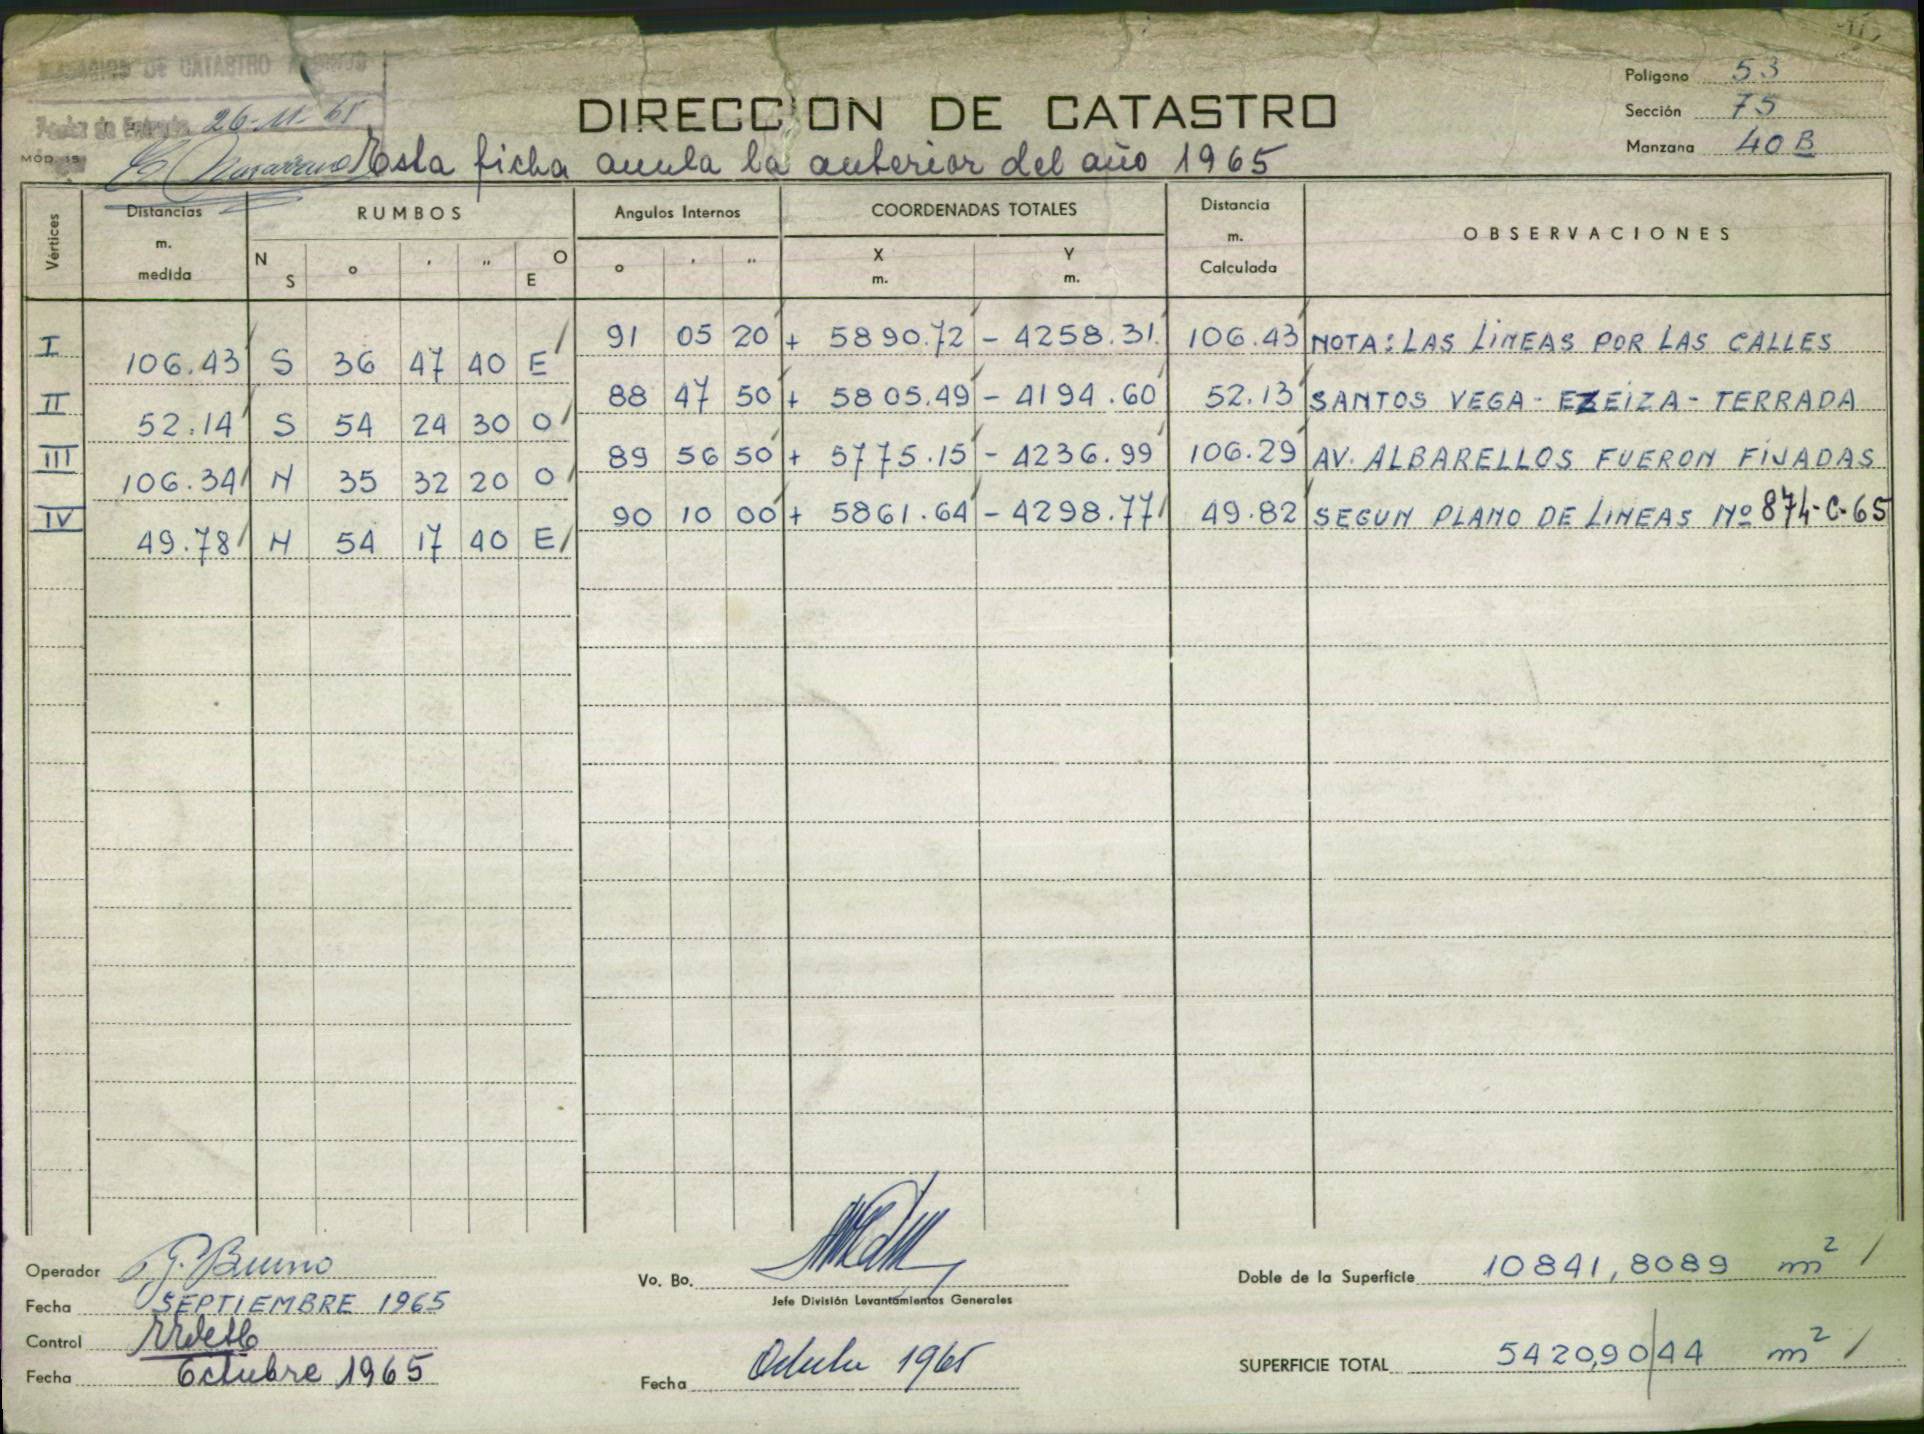 DE CATASTRO
Fecha de Entrada 26-11-65
MÓD. 15
DIRECCION DE CATASTRO
Polígono 53
Sección 75
Manzana 40B
Esta ficha anula la anterior del año 1965
Vértices
Distancias m. medida
RUMBOS
N S ° ' '' O E
Angulos Internos
° ' ''
COORDENADAS TOTALES
X m. Y m.
Distancia m. Calculada
OBSERVACIONES
I 91 05 20 + 5890.72 - 4258.31 106.43 NOTA: LAS LINEAS POR LAS CALLES
106.43 S 36 47 40 E
II 88 47 50 + 5805.49 - 4194.60 52.13 SANTOS VEGA - EZEIZA - TERRADA
52.14 S 54 24 30 O
III 89 56 50 + 5775.15 - 4236.99 106.29 AV. ALBARELLOS FUERON FIJADAS
106.34 N 35 32 20 O
IV 90 10 00 + 5861.64 - 4298.77 49.82 SEGUN PLANO DE LINEAS Nº 874-C-65
49.78 N 54 17 40 E
Operador J. Bruno
Fecha SEPTIEMBRE 1965
Control
Fecha Octubre 1965
Vo. Bo.
Jefe División Levantamientos Generales
Fecha Octubre 1965
Doble de la Superficie 10841,8089 m²
SUPERFICIE TOTAL 5420,9044 m²